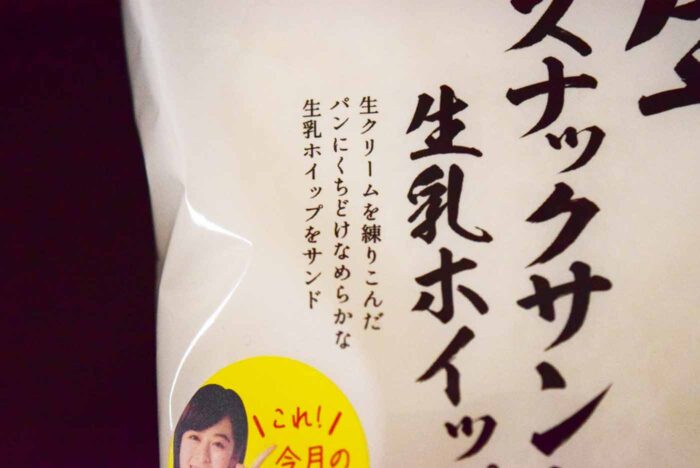 生
スナックサン
生乳ホイッ
生クリームを練りこんだ
パンにくちどけなめらかな
生乳ホイップをサンド
これ!
今月の